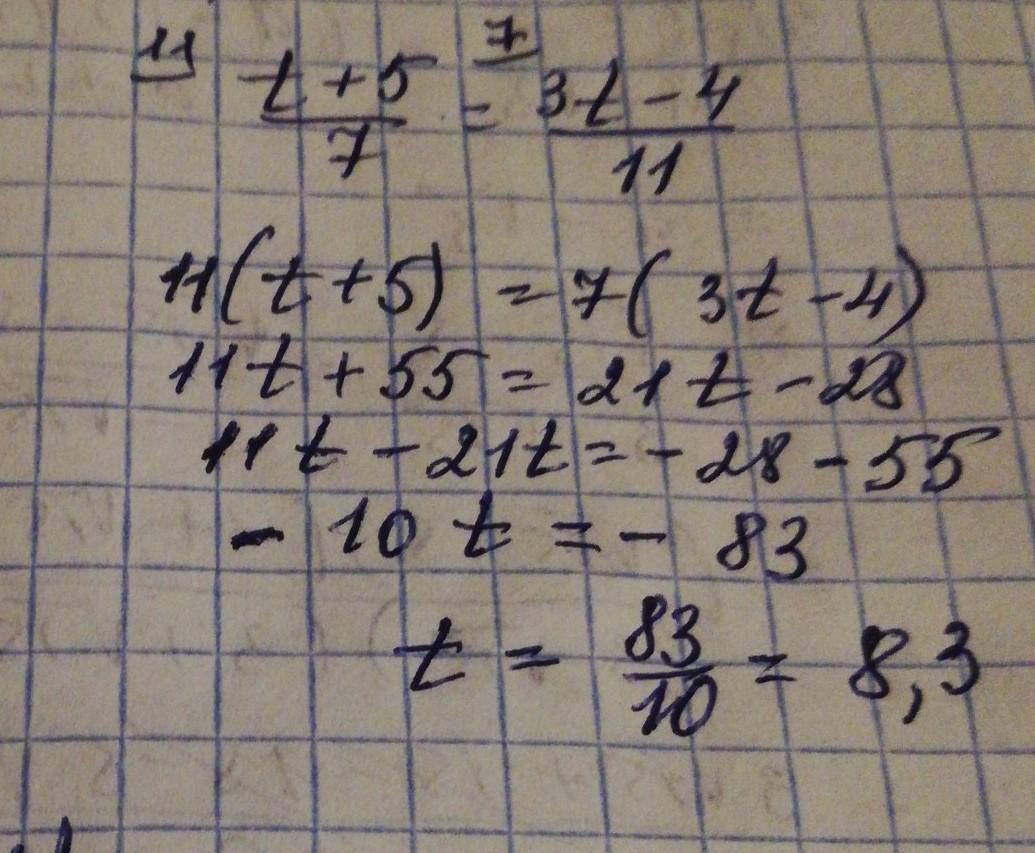 11 7
t + 5 = 3t - 4
7 11
11(t + 5) = 7(3t - 4)
11t + 55 = 21t - 28
11t - 21t = - 28 - 55
- 10t = - 83
t = 83/10 = 8,3